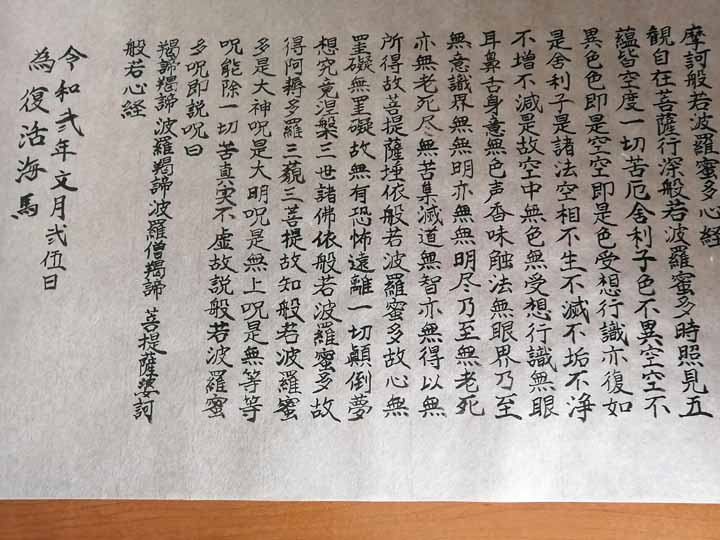 摩訶般若波羅蜜多心経
観自在菩薩行深般若波羅蜜多時照見五
蘊皆空度一切苦厄舍利子色不異空空不
異色色即是空空即是色受想行識亦復如
是舍利子是諸法空相不生不滅不垢不浄
不増不減是故空中無色無受想行識無眼
耳鼻舌身意無色声香味触法無眼界乃至
無意識界無無明亦無無明尽乃至無老死
亦無老死尽無苦集滅道無智亦無得以無
所得故菩提薩埵依般若波羅蜜多故心無
罣礙無罣礙故無有恐怖遠離一切顛倒夢
想究竟涅槃三世諸佛依般若波羅蜜多故
得阿耨多羅三藐三菩提故知般若波羅蜜
多是大神呪是大明呪是無上呪是無等等
呪能除一切苦真実不虚故説般若波羅蜜
多呪即説呪曰
羯諦羯諦 波羅羯諦 波羅僧羯諦 菩提薩婆訶
般若心経
令和弐年文月弐伍日
為復活海馬